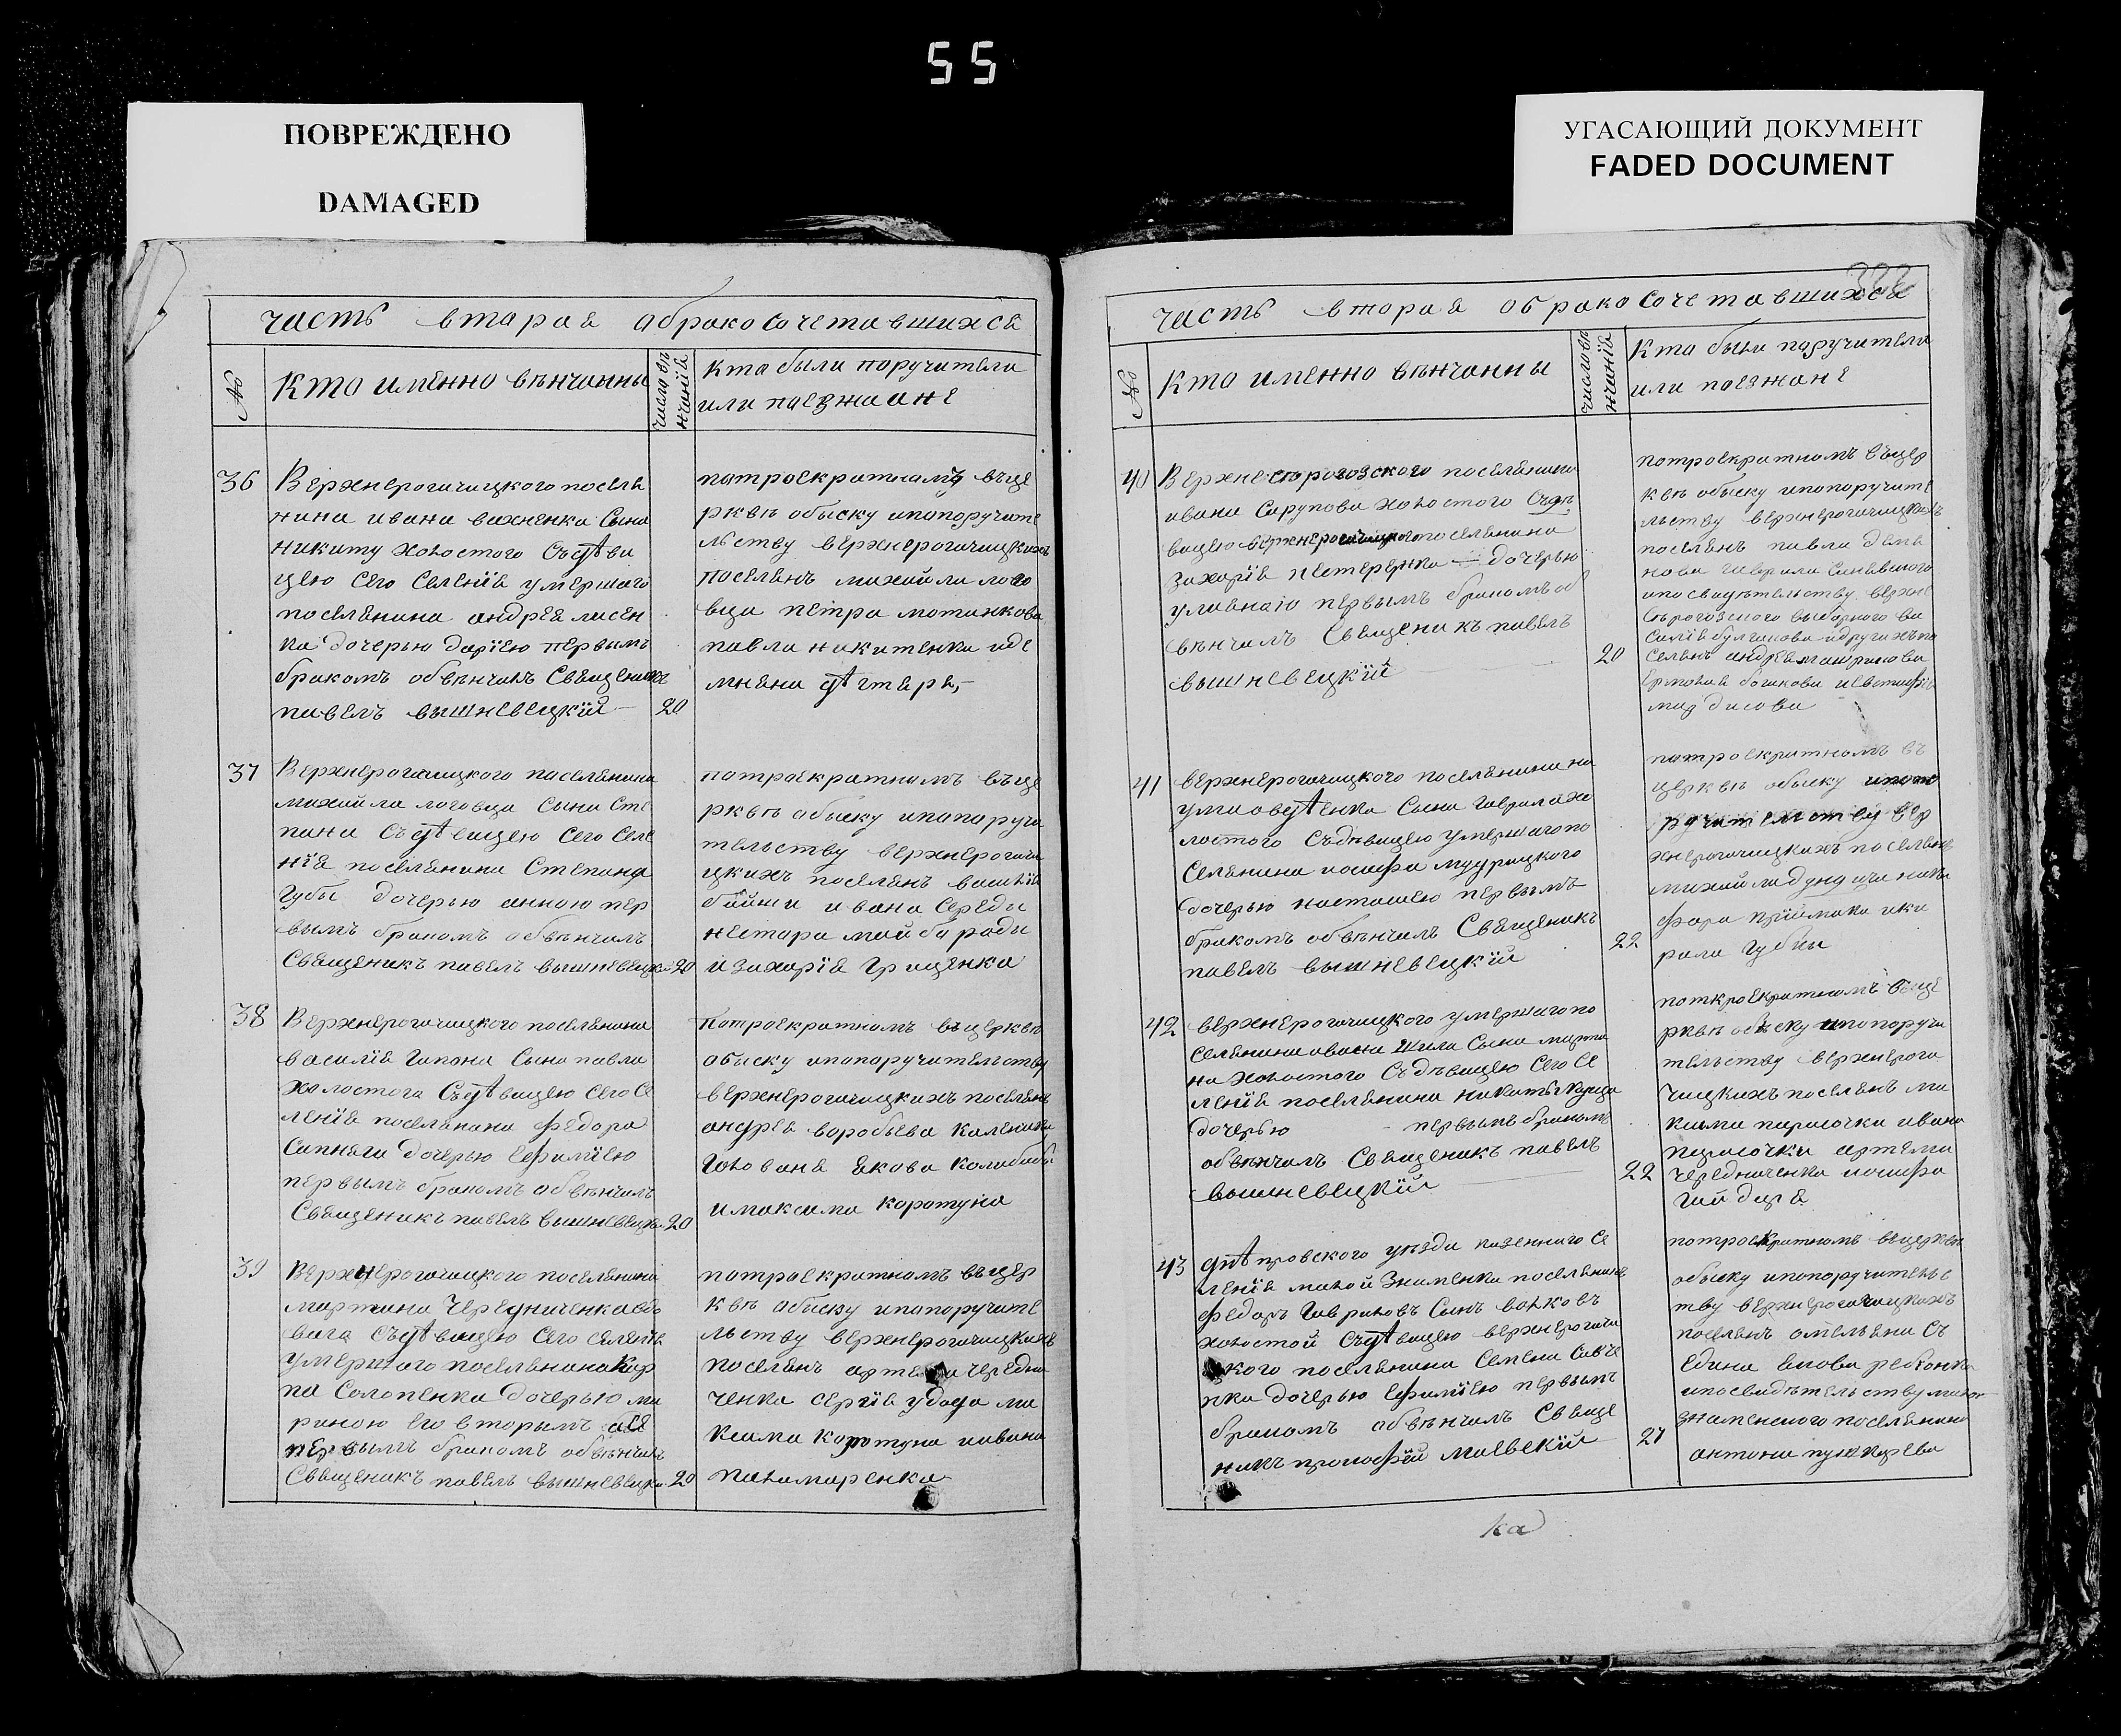 55
ПОВРЕЖДЕНО
DAMAGED
УГАСАЮЩИЙ ДОКУМЕНТ
FADED DOCUMENT
часть вторая обракосочетавшихся
№
Кто именно вѣнчанны
число вѣнчанія
Кто были поручители
или поезжане
36
Верхнерогачицкого поселя
нина ивана вахненка сына
никиту холостого съ дѣви
цею сего селенія умершаго
поселянина андрея лисен
ка дочерью даріею первымъ
бракомъ обвѣнчалъ священикъ
павелъ вышневецкій
20
потроекратномъ въце
рквѣ обыску ипопоручите
льству верхнерогачицкихъ
поселянъ михайла лого
вца петра мотинкова
павла никитенка иде
37
Верхнерогачицкого поселянина
михайла логовца сына сте
пана съ дѣвицею сего селе
нія поселянина степана
губы дочерью анною пер
вымъ бракомъ обвѣнчалъ
священикъ павелъ вышневецкій 20
потроекратномъ въце
рквѣ обыску ипопоручи
тельству верхнерогачи
цкихъ поселянъ василія
ивана середы
нестора май бороды
и захарія грищенка
38
Верхнерогачицкого поселянина
василія гапона сына павла
холостого съ дѣвицею сего се
ленія поселянина федора
сапняги дочерью ефиміею
первымъ бракомъ обвѣнчалъ
священикъ павелъ вышневецкій 20
потроекратномъ въцерквѣ
обыску ипопоручительству
верхнерогачицкихъ поселянъ
андрея воробьева каленика
голована якова колибабы
имаксима коротуна
39
Верхнерогачицкого поселянина
мартина чередниченка вдо
вого съ дѣвицею сего селенія
умершого поселянина кар
па солопенка дочерью ма
риною его вторымъ а ея
первымъ бракомъ обвѣнчалъ
священикъ павелъ вышневецкій 20
потроекратномъ въцер
квѣ обыску ипопоручите
льству верхнерогачицкихъ
поселянъ артема чередни
ченка сергія удода ма
ксима коротуна иивана
паламаренка
часть вторая обракосочетавшихся
№
Кто именно вѣнчанны
число вѣнчанія
Кто были поручители
или поезжане
40
Верхнесѣрогозского поселянина
ивана сарупова холостого съ дѣ
вицею верхнерогачицкого поселянина
захарія нестеренка дочерью
уліаніею первымъ бракомъ об
вѣнчалъ священикъ павелъ
вышневецкій
20
потроекратномъ въцер
квѣ обыску ипопоручите
льству верхнерогачицкихъ
поселянъ павла
гаврила
ипосвидѣтельству верхне
сѣрогозского выборного ва
силія булгакова идругихъ по
селянъ андрея
41
верхнерогачицкого поселянина на
сына гаврила хо
лостого съдѣвицею умершаго по
селянина иосифа мудрицкого
дочерью настасіею первымъ
бракомъ обвѣнчалъ священикъ
павелъ вышневецкій
22
потроекратномъ въ
церквѣ обыску ипопо
ручительству вер
хнерогачицкихъ поселянъ
михайла ники
фора приймака ики
рила губы
42
верхнерогачицкого умершаго по
селянина ивана шила сына марти
на холостого съдѣвицею сего се
ленія поселянина никиты
дочерью первымъ бракомъ
обвѣнчалъ священикъ павелъ
вышневецкій
22
поткроекратномъ въце
рквѣ обыску ипопоручи
тельству верхнерога
чицкихъ поселянъ ма
ксима ивана
артема
чередниченка иосифа
гайдаря
43
днѣпровского уѣзда казенного се
ленія малой знаменки поселянинъ
федоръ гавриловъ сынъ волковъ
холостой съ дѣвицею верхнерогачи
цкого поселянина семена савче
нка дочерью ефиміею первымъ
бракомъ обвѣнчалъ священи
никъ прокофій маевскій
27
потроекратномъ въцерквѣ
обыску ипопоручительс
тву верхнерогачицкихъ
поселянъ омельяна съ
ипосвидѣтельству мало
знаменского поселянина
антона пушкарева
ка